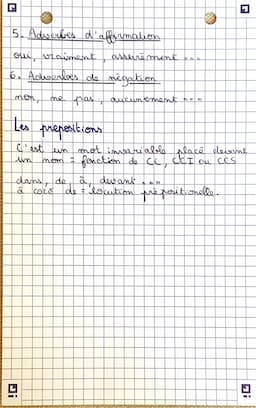 5. Adverbes d'affirmation
oui, vraiment, assurément ...
6. Adverbes de négation
non, ne pas, aucunement ...
Les prepositions
C'est un mot invariable placé devant
un nom = fonction de CC, CCI ou CCS
dans, de, à, devant ...
à coté de = locution prépositionelle.